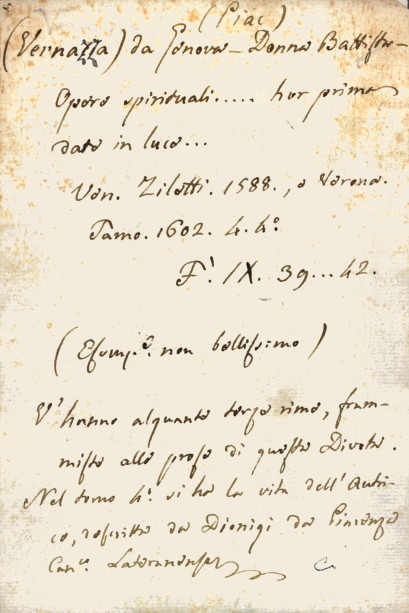 (Piac)
(Vernazza) da Genova - Donna Battista -
Opere spirituali..... hor prima
date in luce...
Ven. Zilotti. 1588., e Verona.
Tamo. 1602. 4. 4.°
F.¹ IX. 39...42.
(Esemp.e non bellissimo)
V'hanno alquante terze rime, fram-
miste alle prose di questa Divota.
Nel tomo 4.° si ha la vita dell'Autri-
ce, descritta da Dionigi da Piacenza
Can.co Lateranense